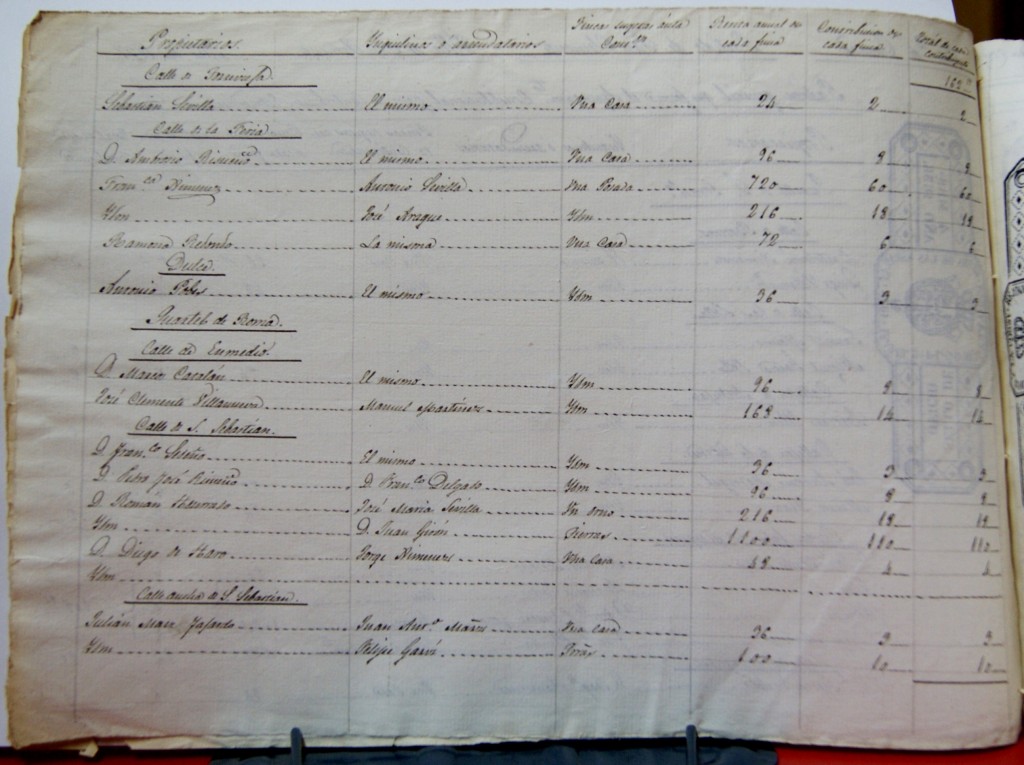 Propietarios. Inquilinos o arrendatarios Fincas sugetas á esta Conton Renta anual de cada finca Contribucion de cada finca Total de cada contribuyente
Calle de
Sebastian Sevilla El mismo Una Casa 24 2 2
Calle de la Feria
D. Ambrosio El mismo Una Casa 96 8 8
Franca Ximenez Antonio Sevilla Una Posada 720 60 60
Ydm José Araque Ydm 216 18 18
Ramona Redondo La misma Una Casa 72 6 6
Dulce
Antonio El mismo Ydm 36 3 3
Cuartel de Roma.
Calle de Enmedio.
D. Mario Catalán El mismo Ydm 96 8 8
José Clemente Villanueva Manuel Martinez Ydm 168 14 14
Calle de S. Sebastian.
D. Franco El mismo Ydm 36 3 3
D. Pedro José D. Franco Delgado Ydm 96 8 8
D. Román José Maria Sevilla Un orno 216 18 18
Ydm D. Juan Girón Tierras 1100 110 110
D. Diego de Haro Jorge Ximenez Una Casa 48 4 4
Ydm
Calle de S. Sebastian.
Julián Man Fajardo Juan Anto Mañas Una Casa 36 3 3
Ydm Felipe Garví 100 10 10